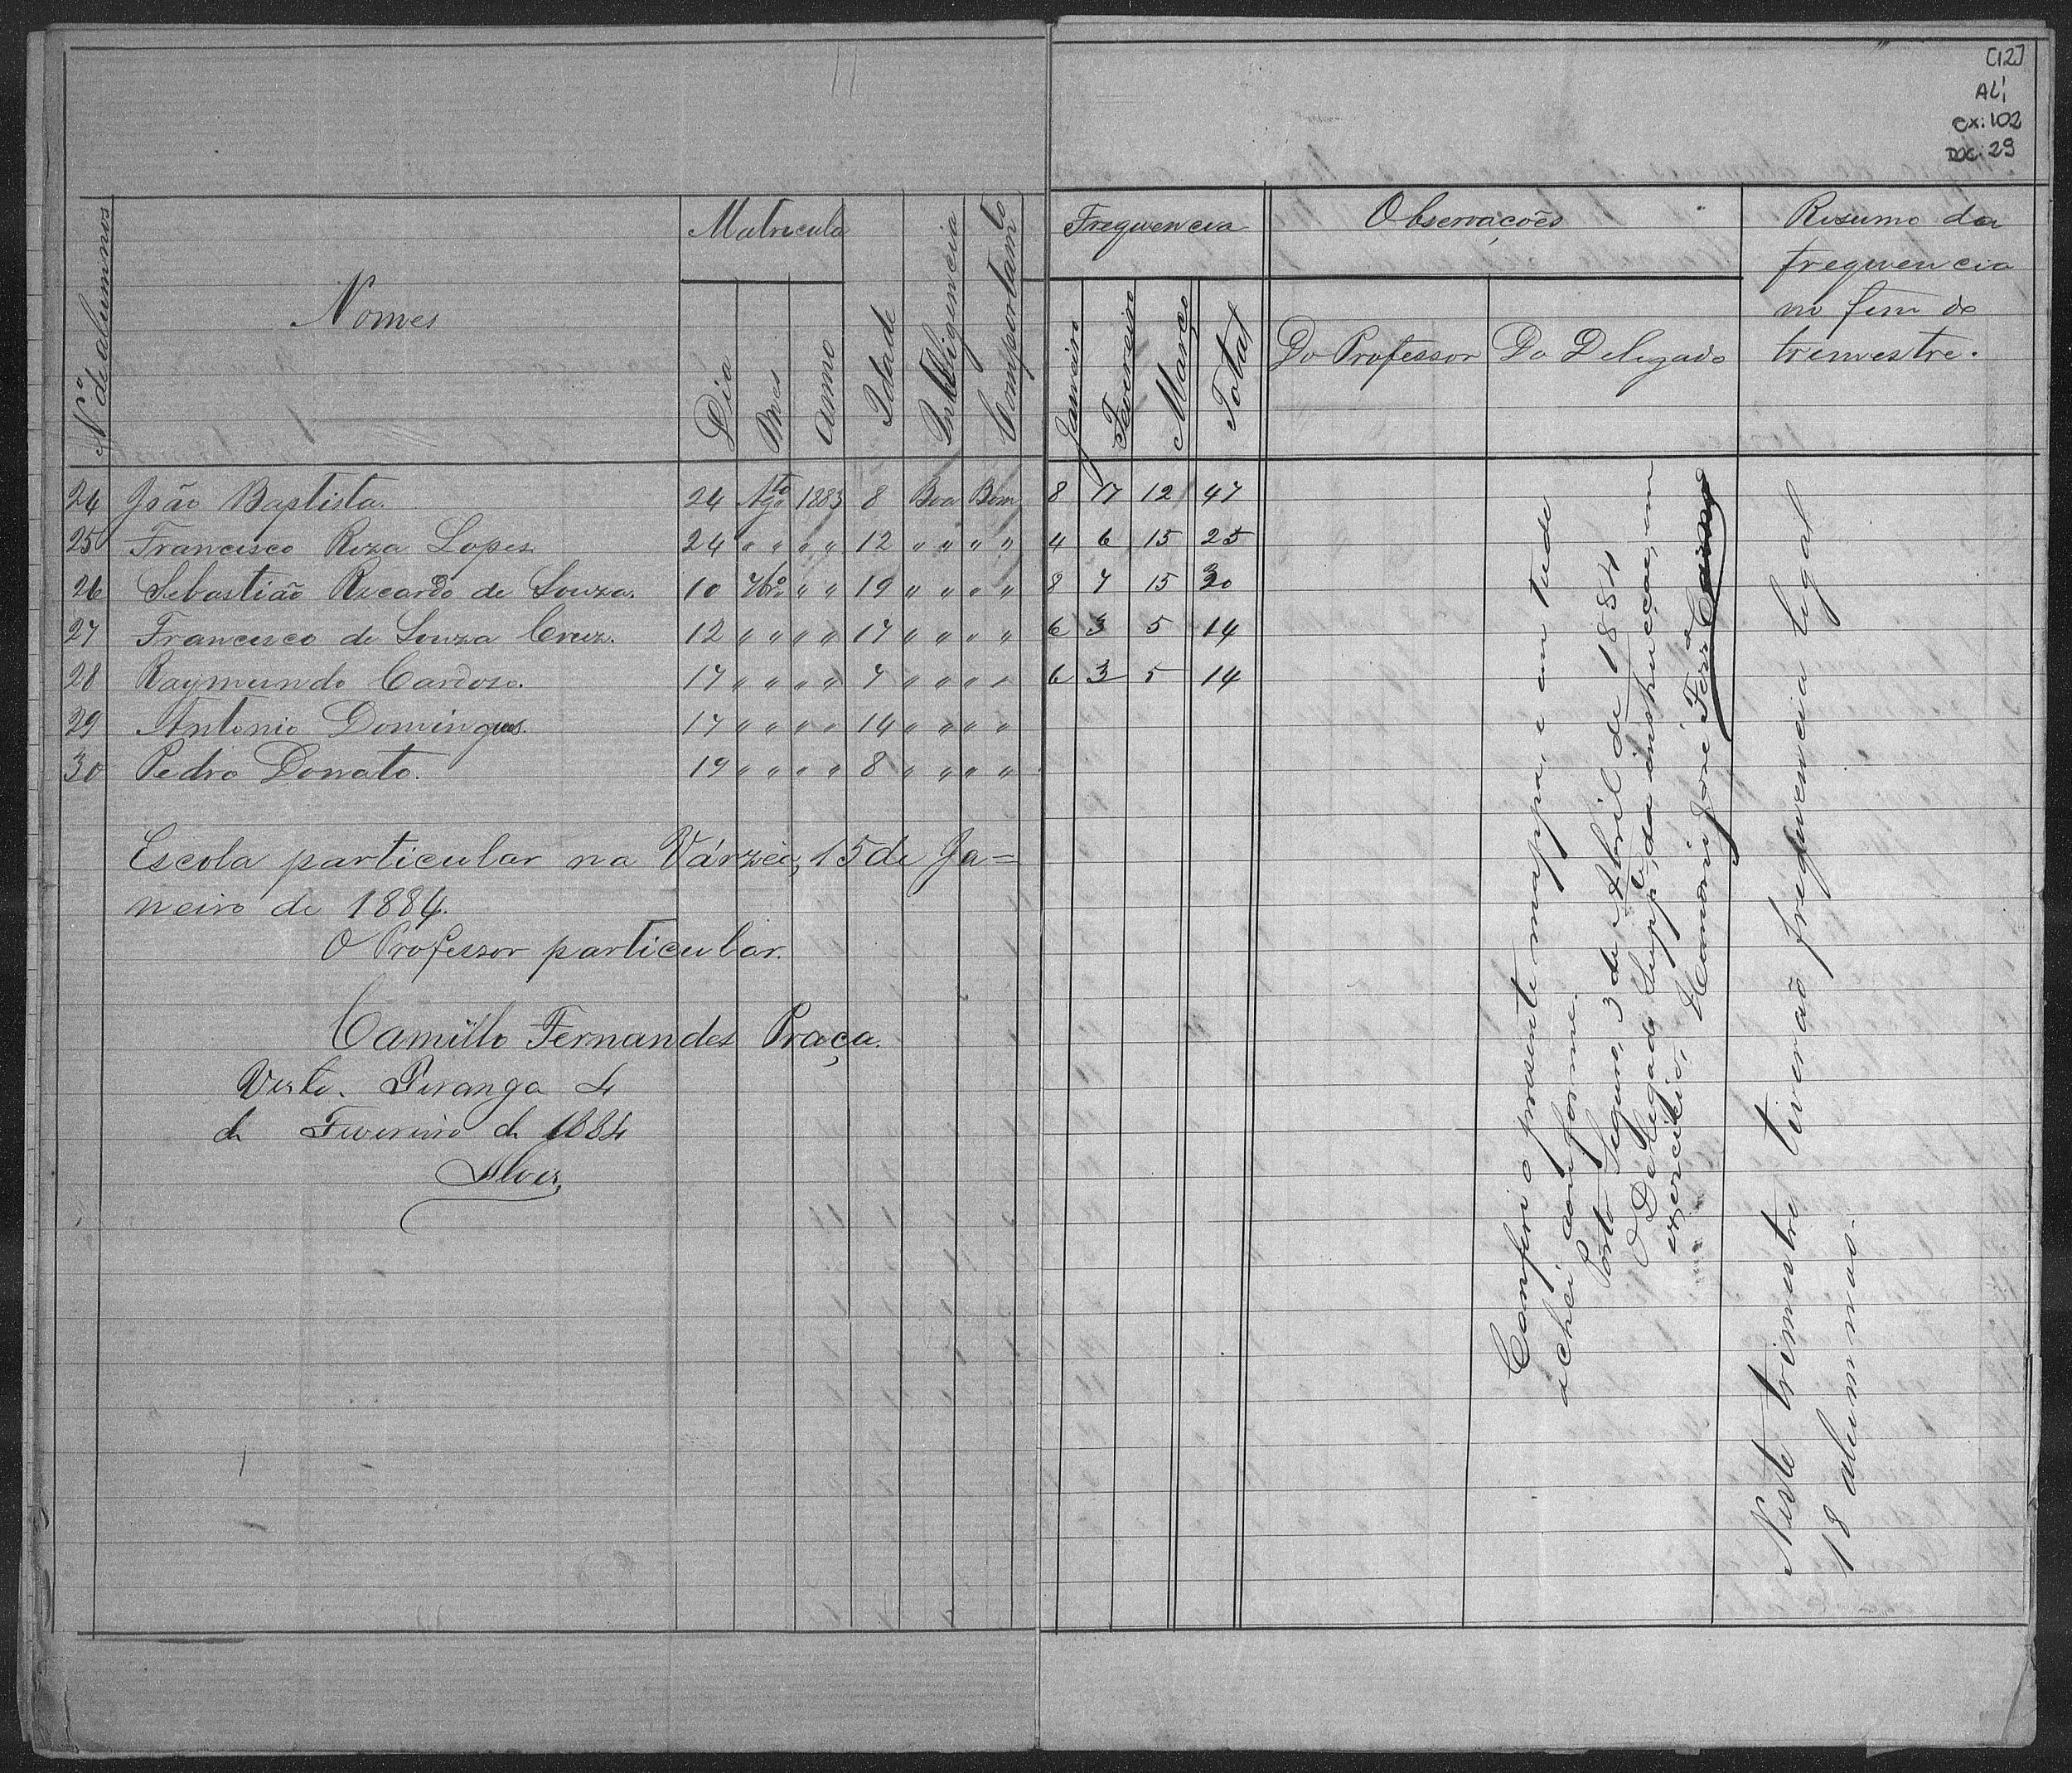 11
[12]
AL1
cx: 102
DOC: 29
Nº de alumnos
Nomes
Matricula
Dia
Mes
Anno
Idade
Intelligencia
Comportamto
Frequencia
Janeiro
Fevereiro
Março
Total
Observações
Do Professor
Do Delegado
Resumo da
frequencia
no fim do
trimestre.
24 João Baptista. 24 Agto 1883 8 Boa Bom 8 17 12 47
25 Francisco Roza Lopes 24 " " " " 12 " " " " 4 6 15 25
26 Sebastião Ricardo de Souza. 10 7bro " " 19 " " " " 8 7 15 30
27 Francisco de Souza Cruz. 12 " " " " 17 " " " " 6 3 5 14
28 Raymundo Cardoso. 17 " " " " 7 " " " " 6 3 5 14
29 Antonio Domingues. 17 " " " " 14 " " " "
30 Pedro Donato. 19 " " " " 8 " " " "
Escola particular na Várzea, 15 de Ja=
neiro de 1884.
O Professor particular.
Camillo Fernandes Praça.
Visto. Piranga 4
de Fevereiro de 1884
Alves
Conferi o presente mappa, e em tudo
achei conforme.
Porto Seguro, 3 de Abril de 1884
O Delegado Suppe, da instrucçao, em
exercicio, Honorio José Ferra
Neste trimestre tiverão frequencia legal
18 alumnos.